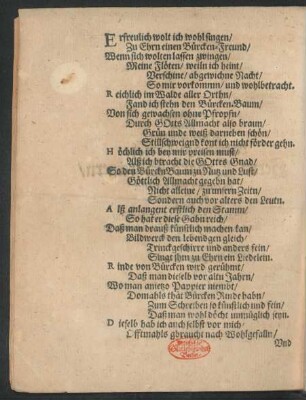 Erfreulich wolt ich wohl singen/
Zu Ehrn einen Bürcken-Freund/
Wenn sich wolten lassen zwingen/
Meine Flöten/ weiln ich heint/
Verschine/ abgewichne Nacht/
So mir vorkomm/ und wohlbetracht.
Reichlich im Walde aller Orthn/
Fand ich stehn den Bürcken-Baum/
Von sich gewachsen ohne Pfropffn/
Durch GOtts Allmacht also braun/
Grün und weiß darneben schön/
Stillschweignd kont ich nicht förder gehn.
Höchlich ich bey mir preisen must/
Alß ich btracht die GOttes Gnad/
So den Bürckn Baum zu Nutz und Lust/
Göttlich Allmacht gegebn hat/
Nicht alleine/ zu unsern Zeitn/
Sondern auch vor alters den Leutn.
Alß anlangent erstlich den Stamm/
So hat er diese Gabn reich/
Daß man drauß künstlich machen kan/
Bildwerck den lebendgen gleich/
Trinckgeschirre und anders fein/
Singt ihm zu Ehrn ein Liedelein.
Rinde von Bürcken wird gerühmt/
Daß man dieselb vor altn Jahren/
Wo man anietzo Pappier nimbt/
Domahls that Bürcken Rinde habn/
Zum Schreiben so künstlich und fein/
Daß man wohl böcht unmüglich seyn.
Dieselb hab ich auch selbst vor mich/
Offtmahls gbraucht nach Wohlgefalln/
Und